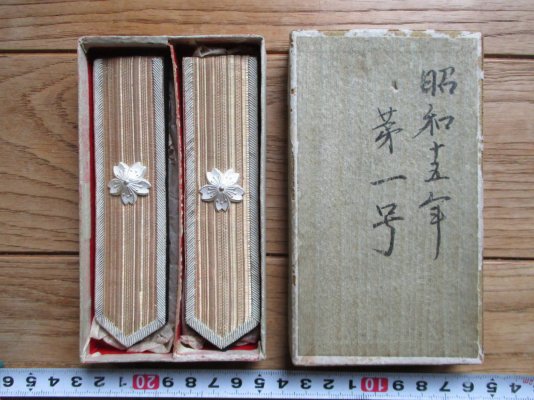 昭和十五年
第一号
5 6 7 8 9 10 1 2 3 4 5 6 7 8 9 20 1 2 3 4 5 6